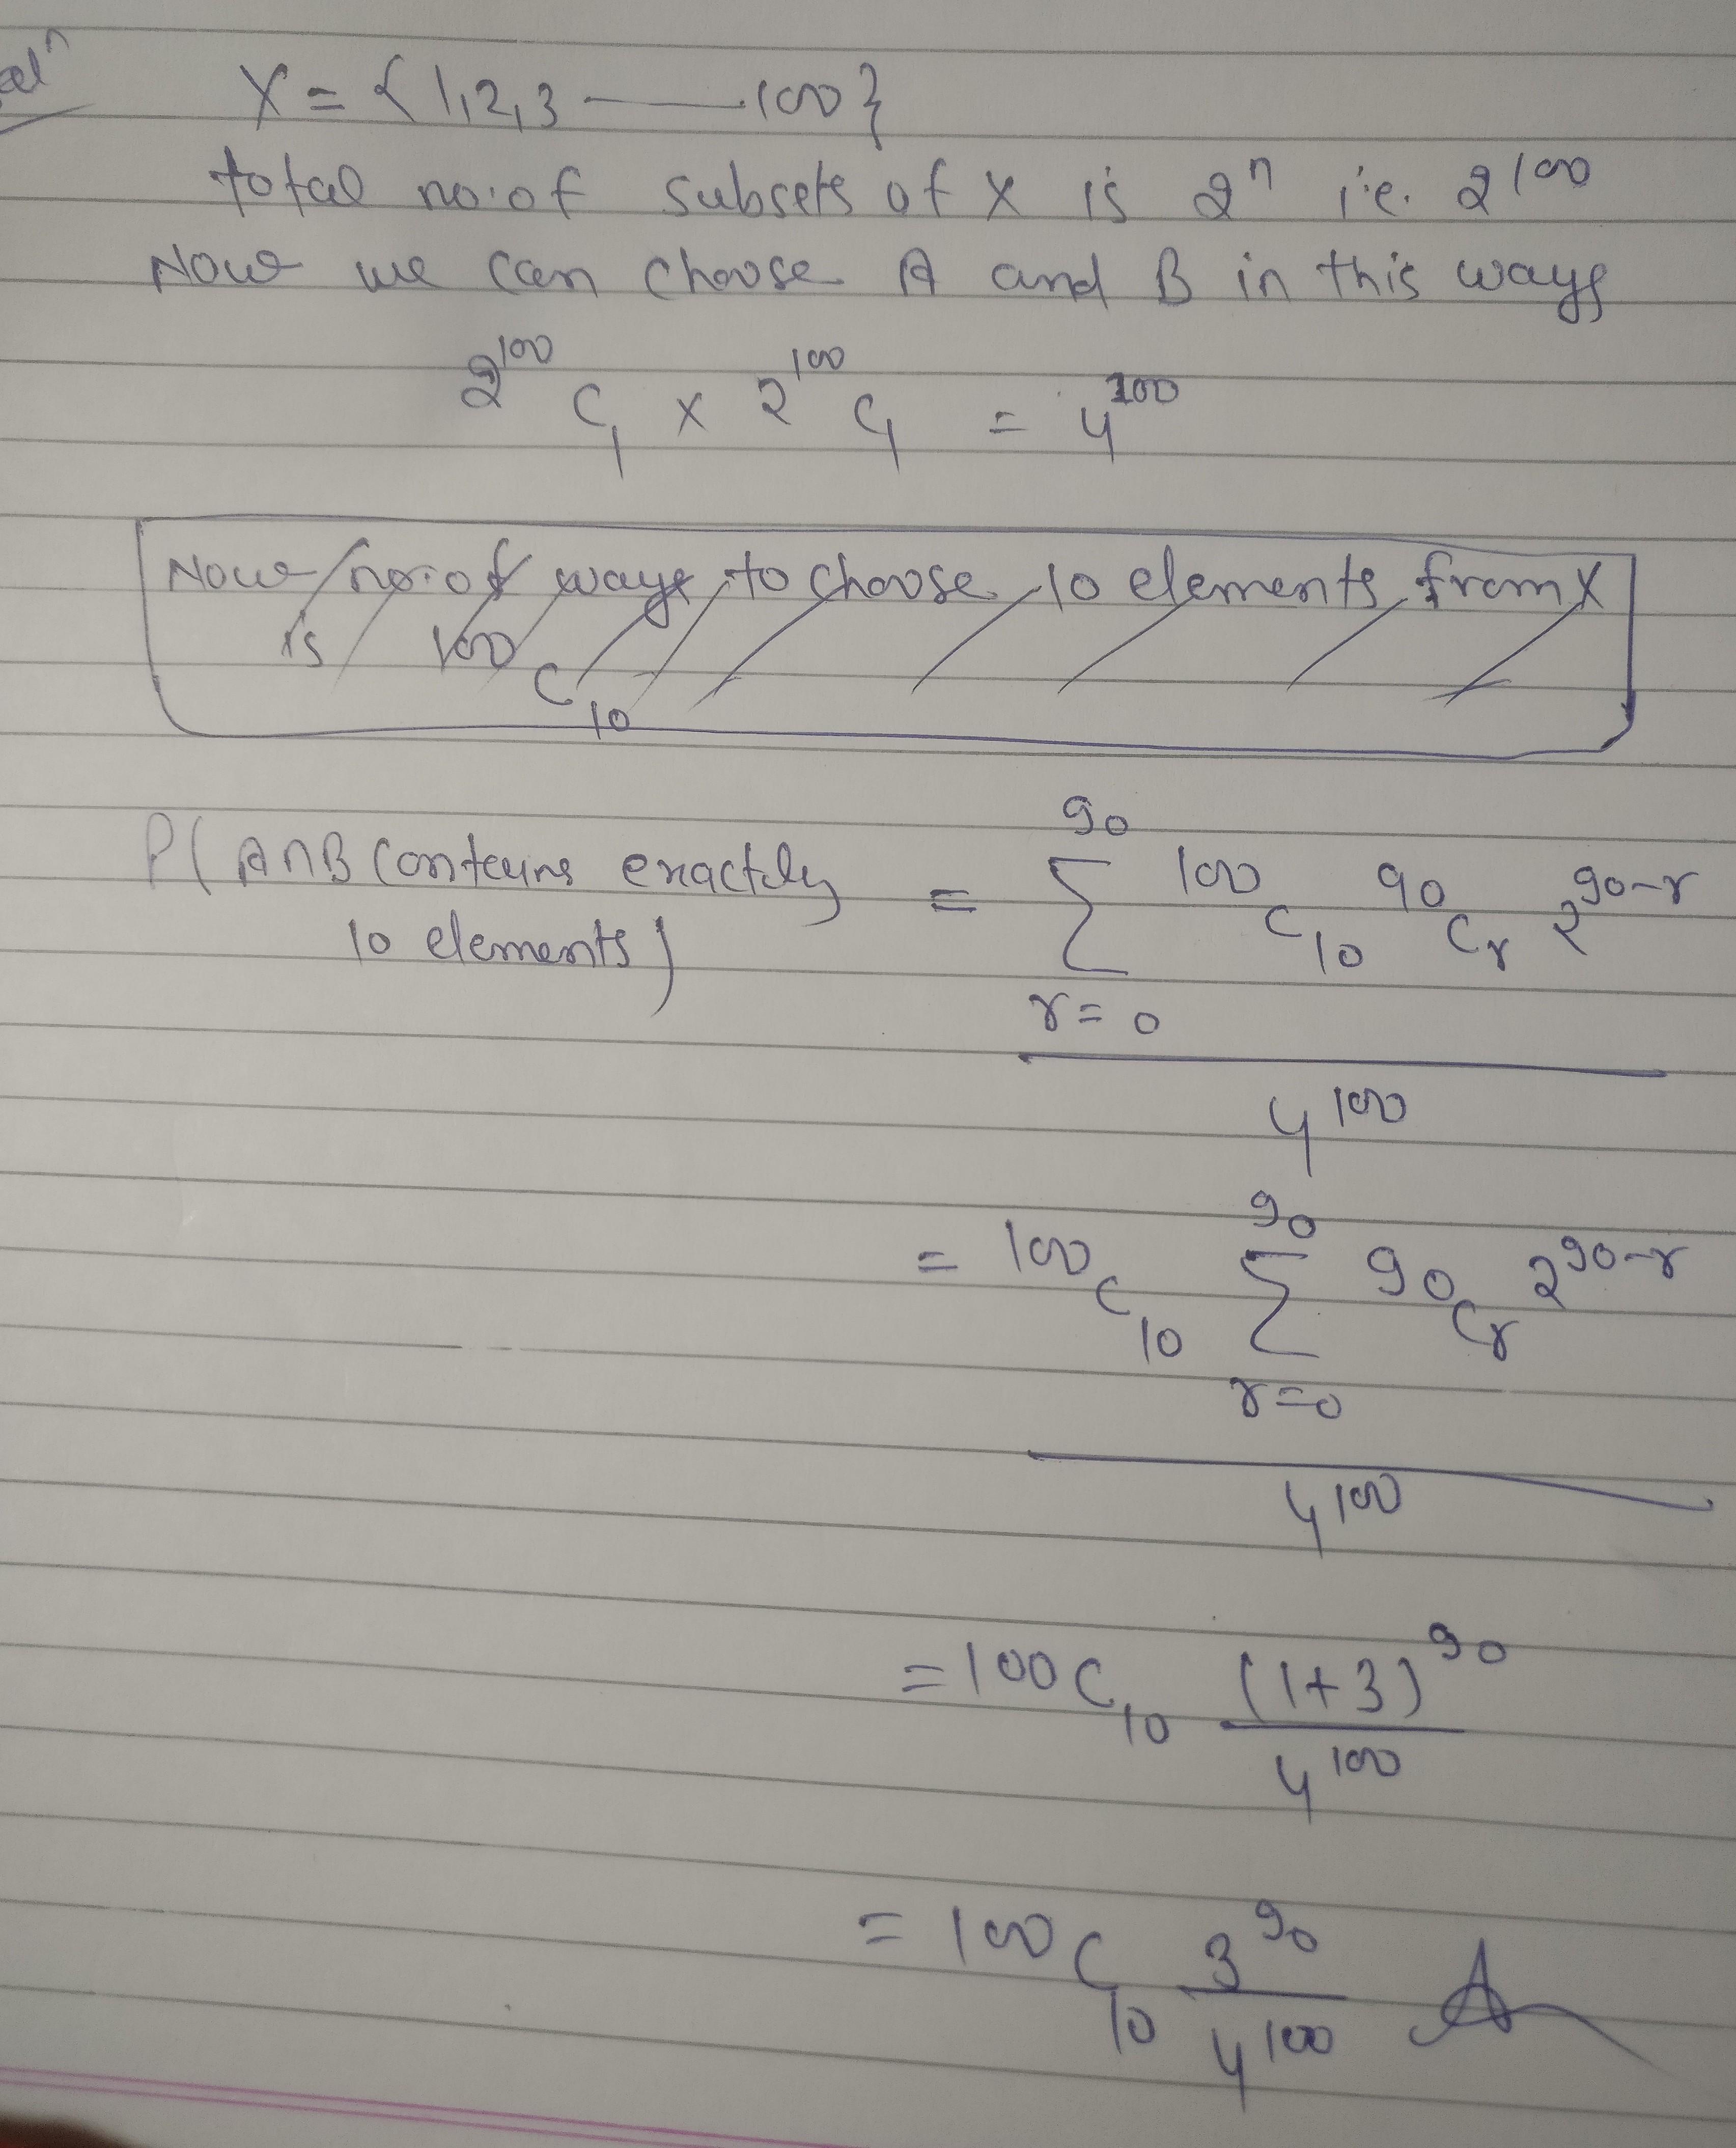 X = {1,2,3 —— 100}
total no. of subsets of X is 2^n i.e. 2^100
Now we can choose A and B in this ways
2^100 C_1 × 2^100 C_1 = 4^100
Now no. of ways to choose 10 elements from X
is 100 C_10
P(A∩B contains exactly
10 elements) = 90 Σ r=0 100 C_10 90 C_r 2^90-r
4^100
= 100 C_10 90 Σ r=0 90 C_r 2^90-r
4^100
= 100 C_10 (1+3)^90
4^100
= 100 C_10 3^90
4^100